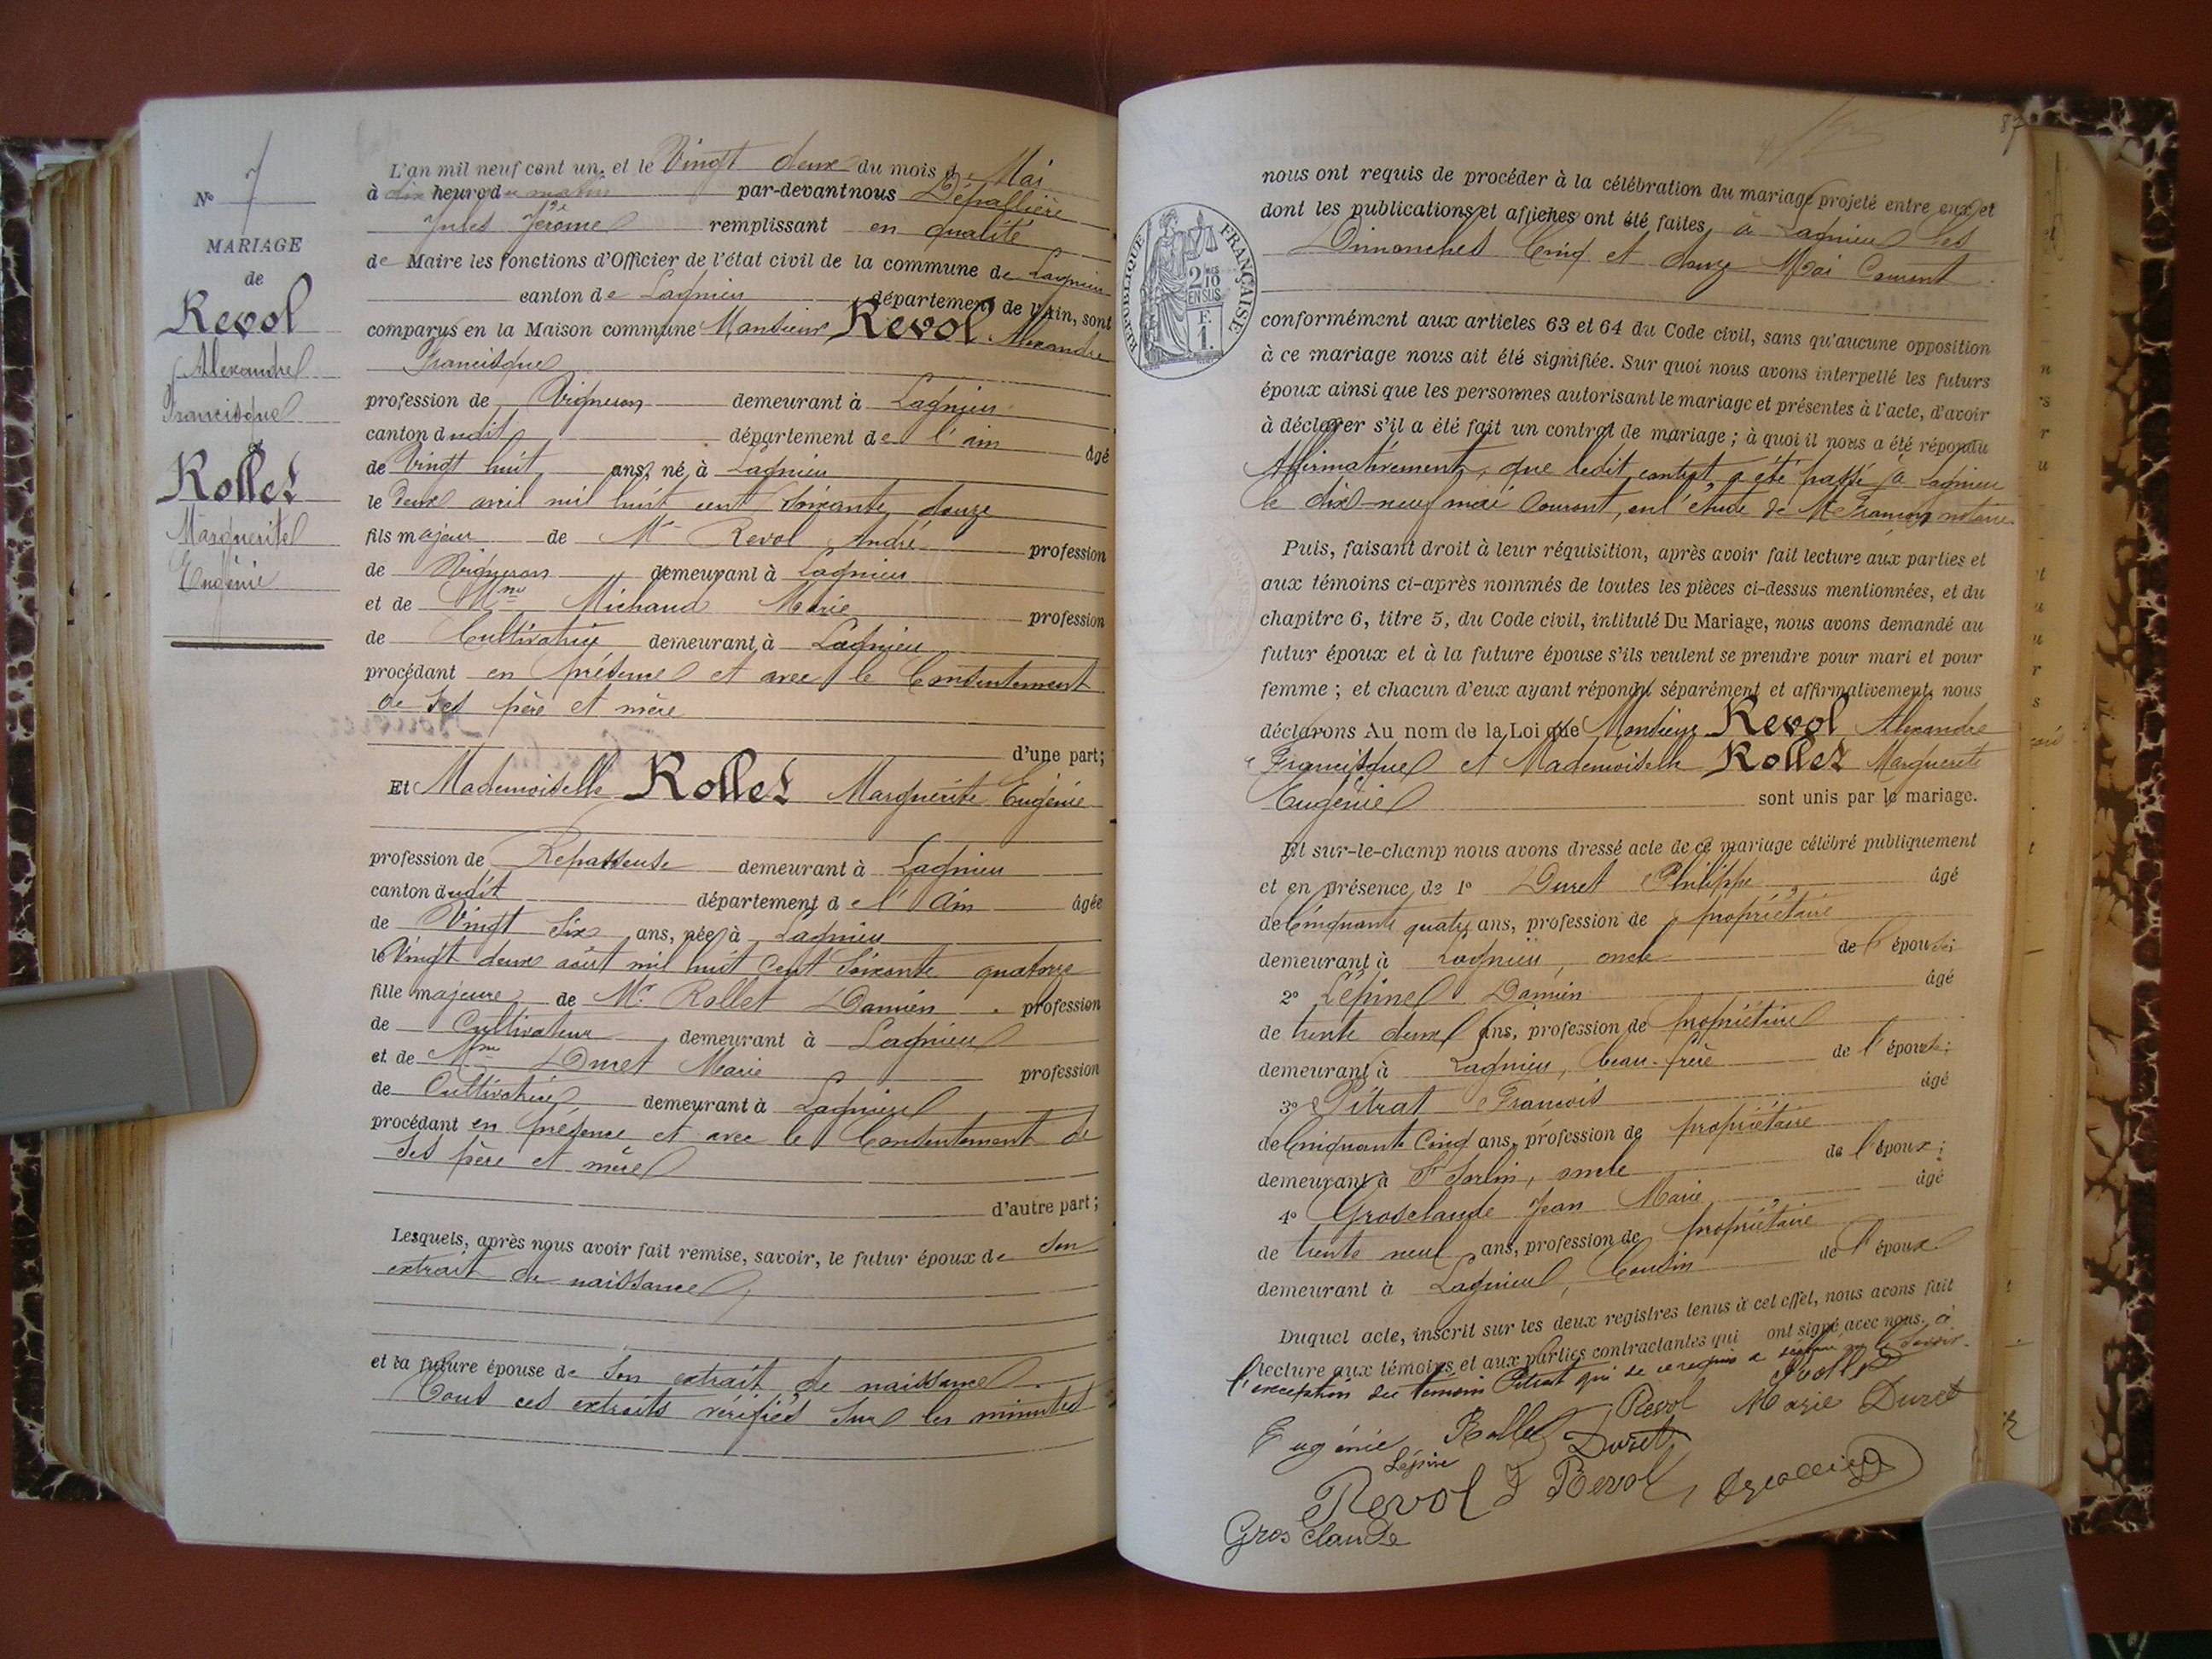 N° 7
MARIAGE
de
Revol
Alexandre
Francisque
Rollet
Marguerite
Eugénie
L'an mil neuf cent un, et le Vingt deux du mois de Mai
à dix heures du matin par-devant nous Dépallière
Jules Jérôme remplissant en qualité
de Maire les fonctions d'Officier de l'état civil de la commune de Lagnieu
canton de Lagnieu département de l'Ain, sont
comparus en la Maison commune Monsieur Revol Alexandre
Francisque
profession de Vigneron demeurant à Lagnieu
canton dudit département de l'ain âgé
de Vingt huit ans, né à Lagnieu
le deux avril mil huit cent soixante douze
fils majeur de Mr Revol André profession
de Vigneron demeurant à Lagnieu
et de Mme Michaud Marie profession
de Cultivatrice demeurant à Lagnieu
procédant en présence et avec le Consentement
de ses père et mère
d'une part;
Et Mademoiselle Rollet Marguerite Eugénie
profession de Repasseuse demeurant à Lagnieu
canton dudit département de l'Ain âgée
de Vingt six ans, née à Lagnieu
le Vingt deux août mil huit cent soixante quatorze
fille majeure de Mr Rollet Damien profession
de Cultivateur demeurant à Lagnieu
et de Mme Duret Marie profession
de Cultivatrice demeurant à Lagnieu
procédant en présence et avec le Consentement de
ses père et mère
d'autre part;
Lesquels, après nous avoir fait remise, savoir, le futur époux de son
extrait de naissance
et la future épouse de son extrait de naissance
Tous ces extraits vérifiés sur les minutes
87
RÉPUBLIQUE FRANÇAISE
2/10
EN SUS
F.
1.
nous ont requis de procéder à la célébration du mariage projeté entre eux et
dont les publications et affiches ont été faites, à Lagnieu les
Dimanches Cinq et douze Mai Courant
conformément aux articles 63 et 64 du Code civil, sans qu'aucune opposition
à ce mariage nous ait été signifiée. Sur quoi nous avons interpellé les futurs
époux ainsi que les personnes autorisant le mariage et présentes à l'acte, d'avoir
à déclarer s'il a été fait un contrat de mariage ; à quoi il nous a été répondu
Affirmativement, que ledit contrat a été passé à Lagnieu
le dix-neuf mai Courant, en l'étude de Me François notaire
Puis, faisant droit à leur réquisition, après avoir fait lecture aux parties et
aux témoins ci-après nommés de toutes les pièces ci-dessus mentionnées, et du
chapitre 6, titre 5, du Code civil, intitulé Du Mariage, nous avons demandé au
futur époux et à la future épouse s'ils veulent se prendre pour mari et pour
femme ; et chacun d'eux ayant répondu séparément et affirmativement, nous
déclarons Au nom de la Loi que Monsieur Revol Alexandre
Francisque et Mademoiselle Rollet Marguerite
Eugénie sont unis par le mariage.
Et sur-le-champ nous avons dressé acte de ce mariage célébré publiquement
et en présence de 1° Duret Philippe âgé
de Cinquante quatre ans, profession de propriétaire
demeurant à Lagnieu, oncle de l'épouse;
2° Lépine Damien âgé
de trente deux ans, profession de propriétaire
demeurant à Lagnieu, beau-frère de l'épouse;
3° Pitrat François âgé
de Cinquante Cinq ans, profession de propriétaire
demeurant à St Sorlin, oncle de l'époux;
4° Grosclaude Jean Marie âgé
de trente neuf ans, profession de propriétaire
demeurant à Lagnieu, Cousin de l'époux
Duquel acte, inscrit sur les deux registres tenus à cet effet, nous avons fait
lecture aux témoins et aux parties contractantes qui ont signé avec nous. à
l'exception du témoin Pitrat qui de ce requis a déclaré ne le savoir.
Rollet
Eugénie Rollet Revol Marie Duret
Lépine Duret
Revol J Revol Dépallière
Grosclaude